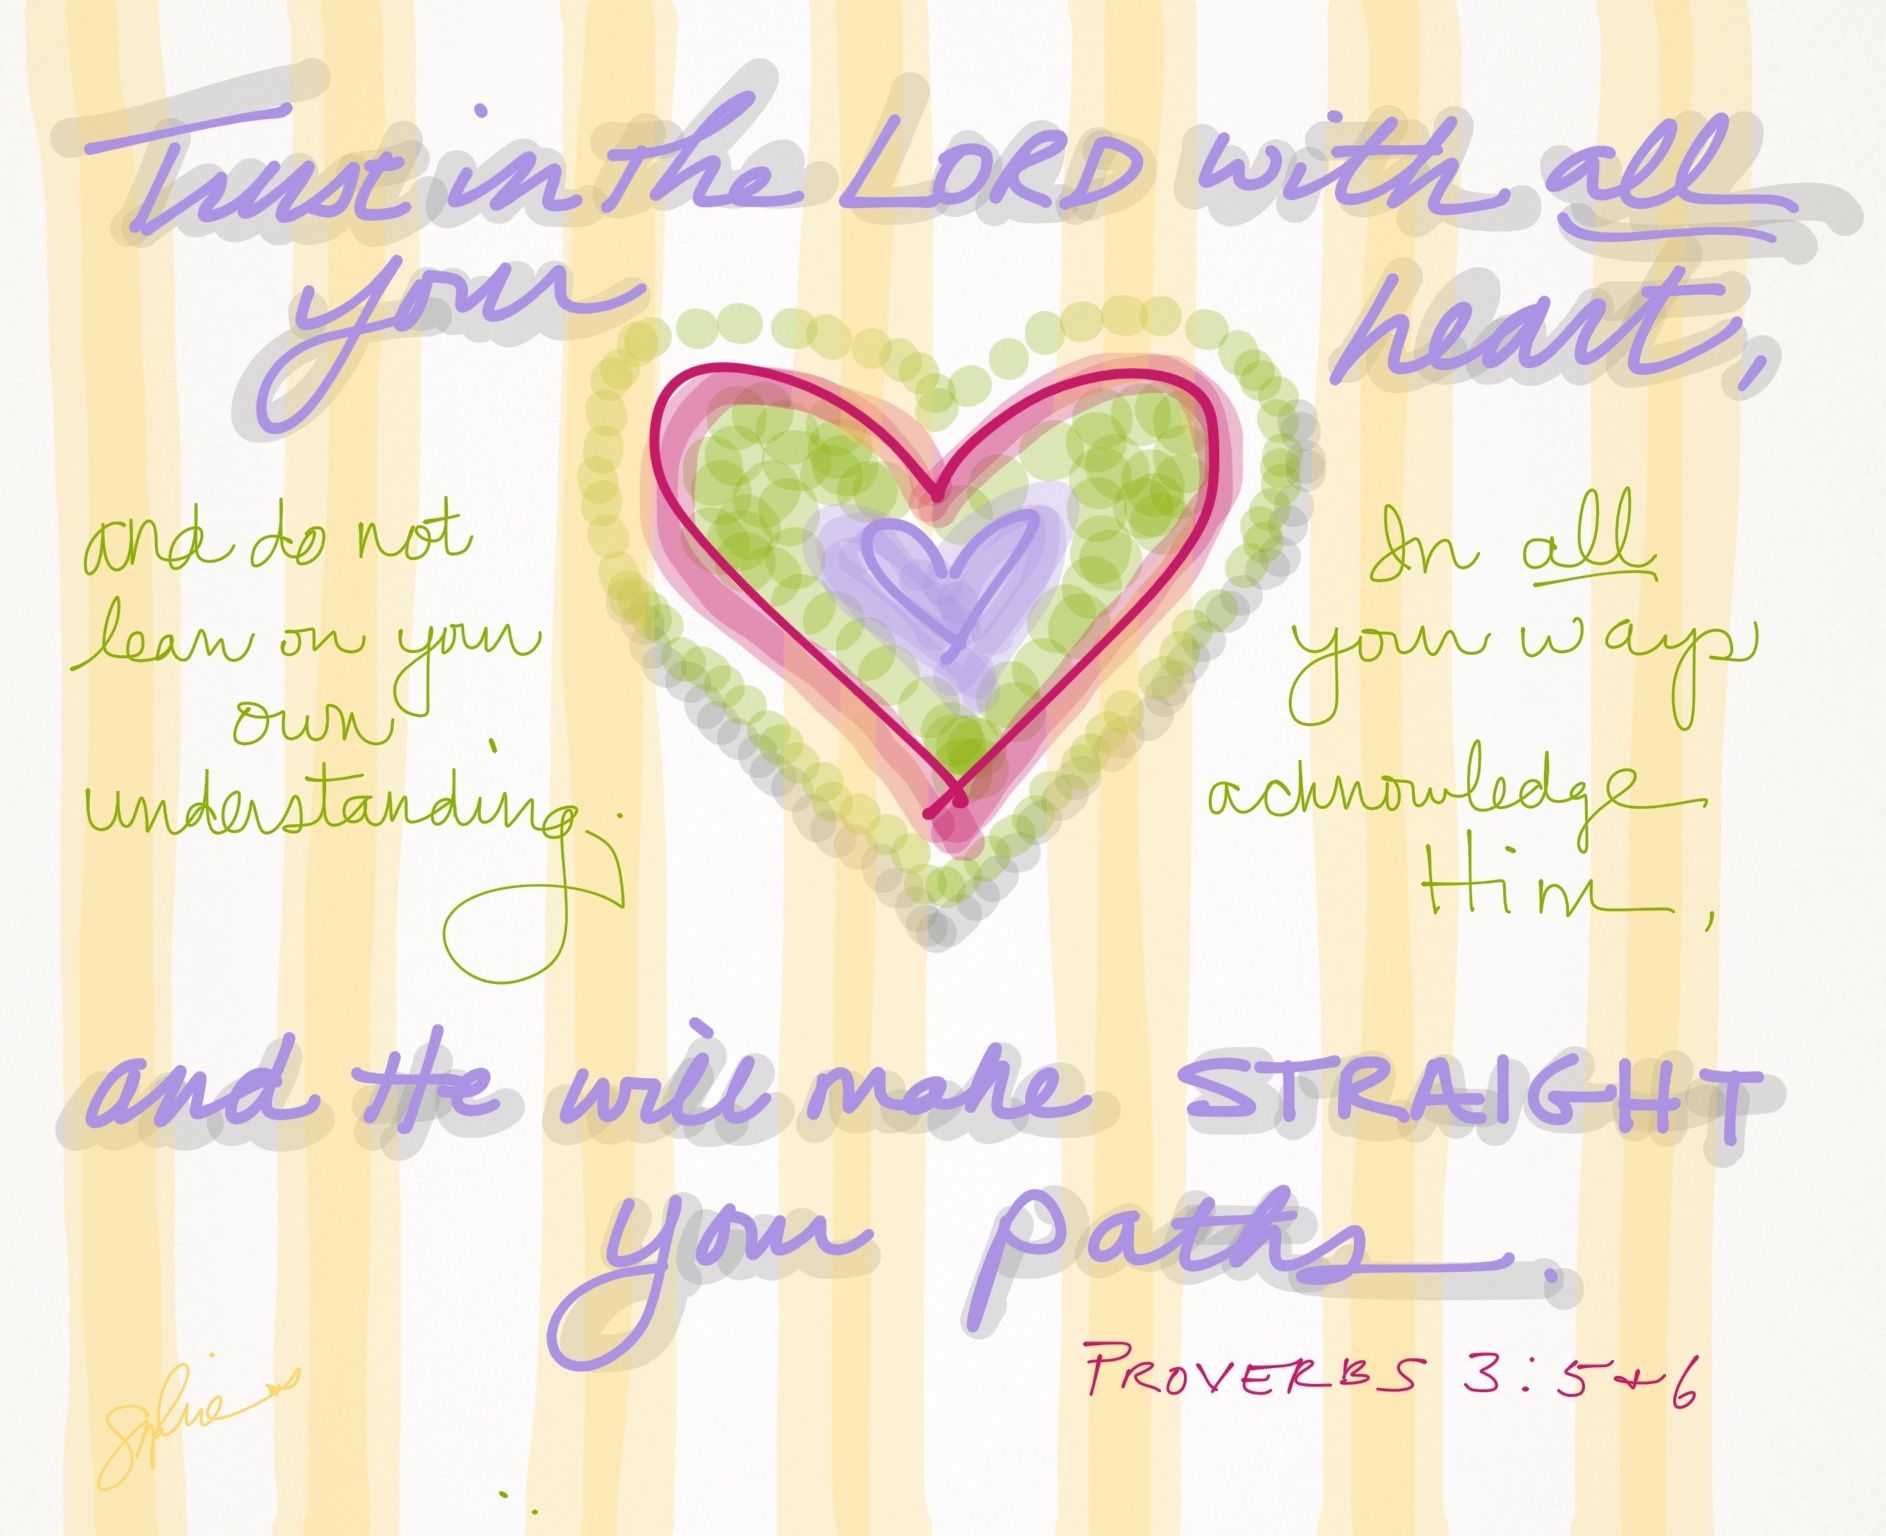 Trust in the LORD with all
your heart,
and do not
lean on your
own
understanding;
In all
your ways
acknowledge
Him,
and He will make STRAIGHT
your paths.
PROVERBS 3:5+6
Sophie